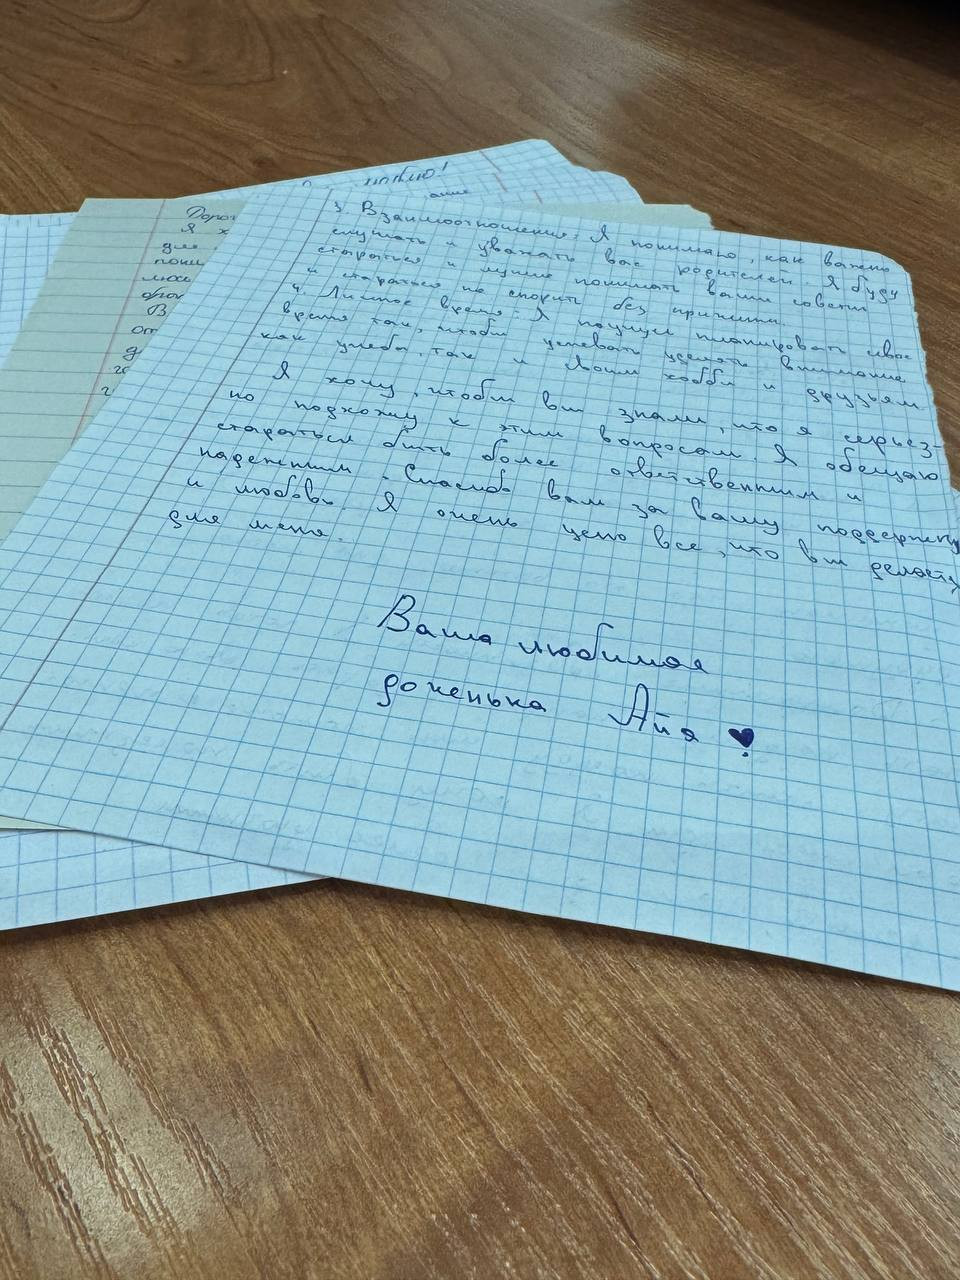 люблю!
Дорог
Я х
для
3. Взаимоотношения: Я понимаю, как важно
слушать и уважать вас родителей. Я буду
стараться и лучше понимать ваши советы
и стараться не спорить без причины.
4. Личное время: Я научусь планировать свое
время так, чтобы успевать уделять внимание
как учебе, так и своим хобби и друзьям.
Я хочу, чтобы вы знали, что я серьез-
но подхожу к этим вопросам. Я обещаю
стараться быть более ответственным и
надежным. Спасибо вам за вашу поддержку
и любовь. Я очень ценю все, что вы делаете
для меня.
Ваша любимая
доченька Айя